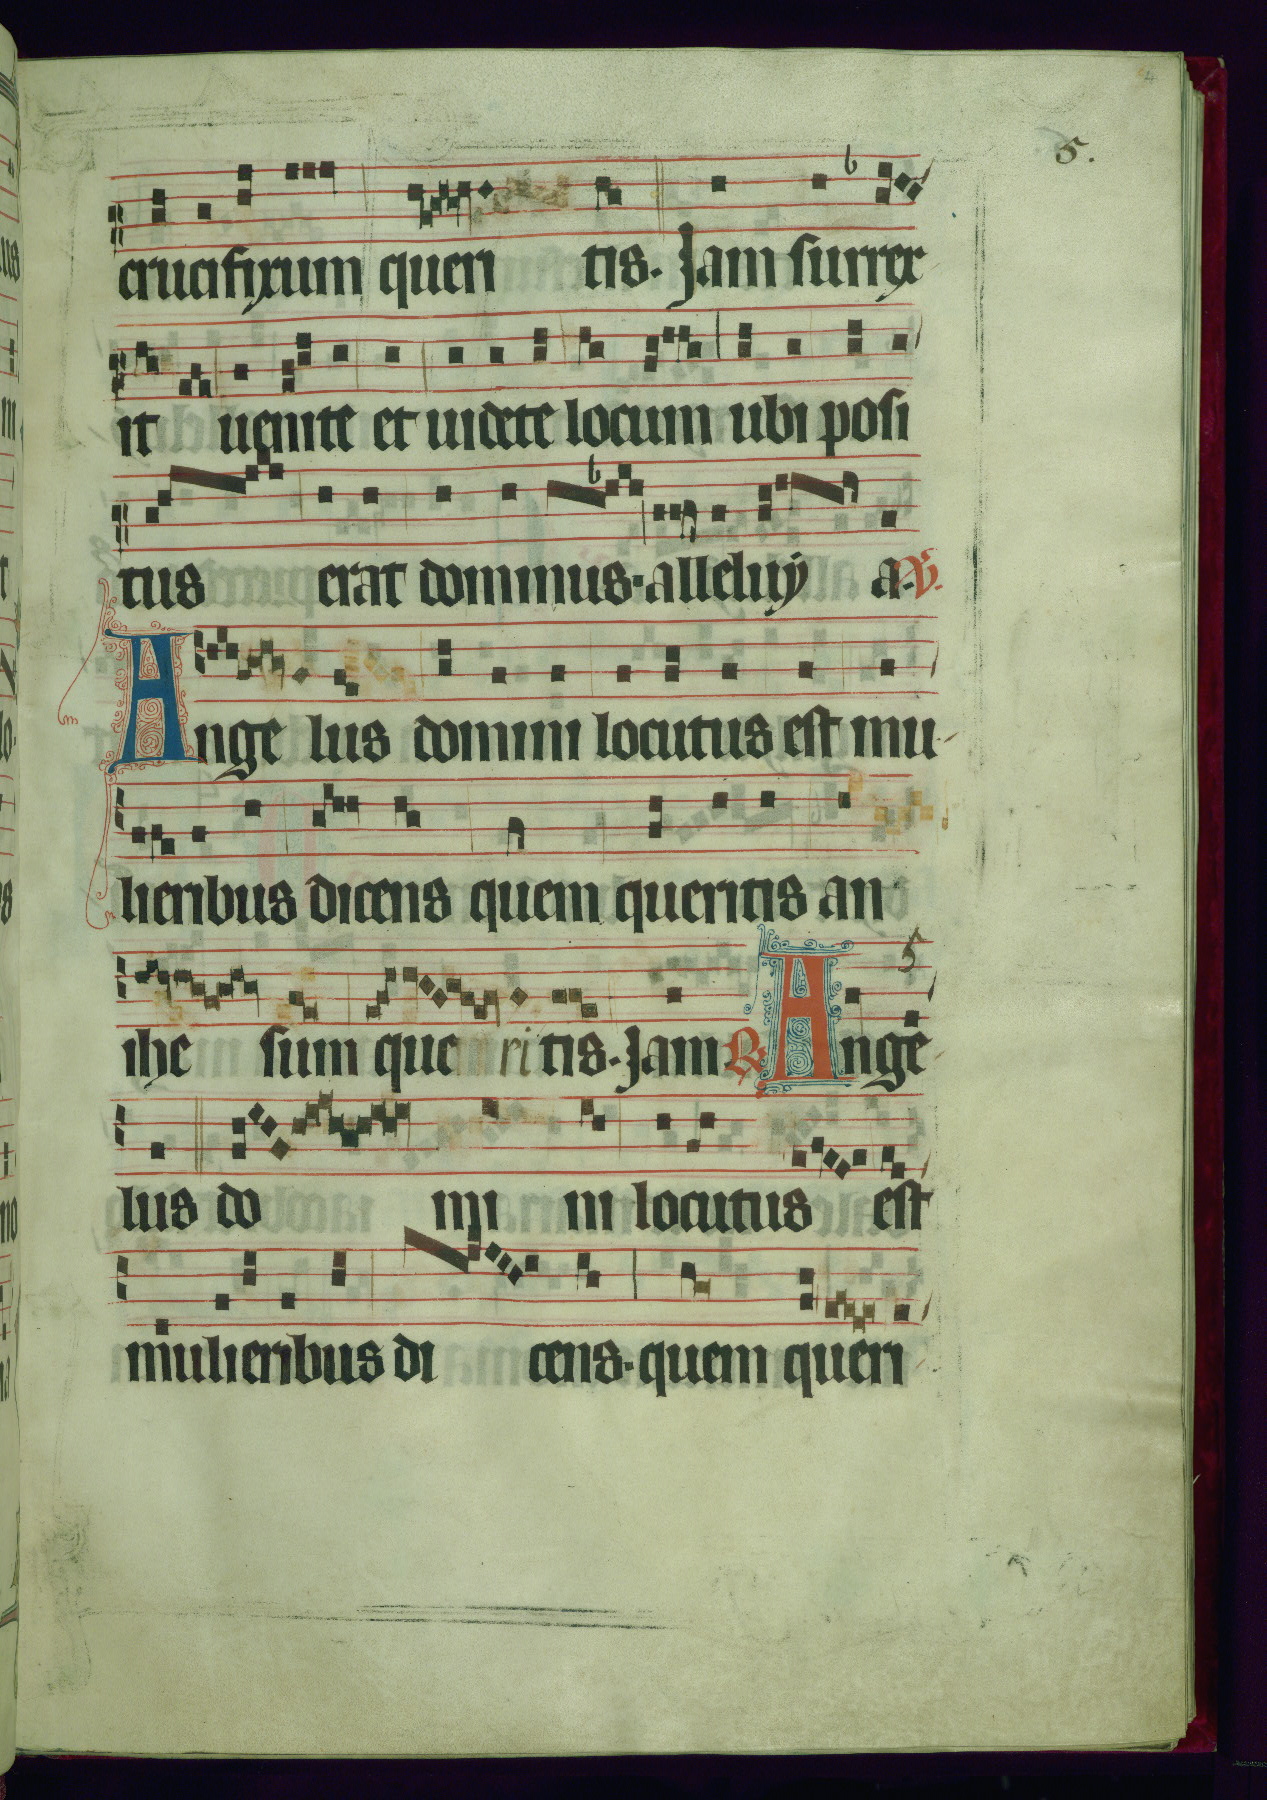 5.
crucifixum queri tis. Jam surrex
it uenite et uidete locum ubi posi
tus erat dominus. alleluÿ a. V.
Ange lus domini locutus est mu-
lieribus dicens quem queritis an
ihe sum que ritis. Jam R. Ange
lus do mi ni locutus est
mulieribus di cens. quem queri